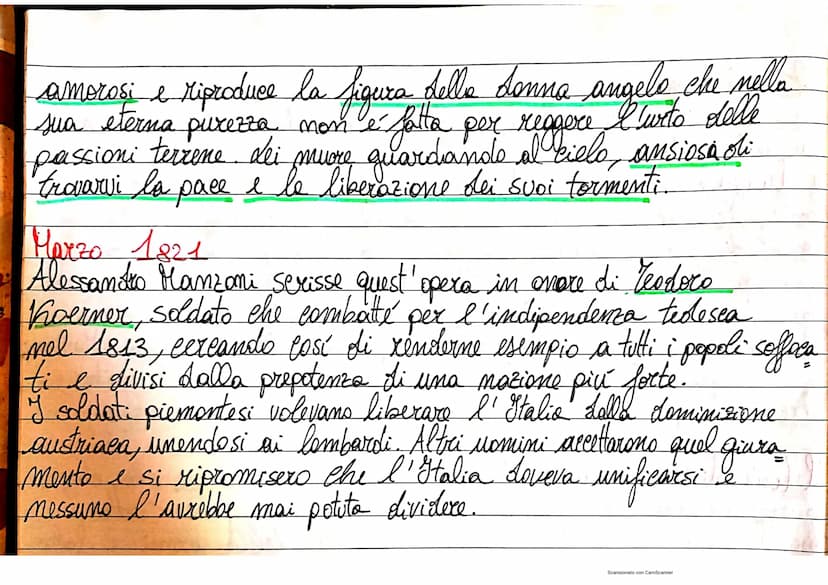 amorosi e riproduce la figura della donna angelo che nella
sua eterna purezza non é fatta per reggere l'urto delle
passioni terrene. Lei muore guardando al cielo, ansiosa di
trovarvi la pace e la liberazione dei suoi tormenti.
Marzo 1821
Alessandro Manzoni scrisse quest'opera in onore di Teodoro
Koerner, soldato che combatté per l'indipendenza tedesca
nel 1813, cercando cosí di renderne esempio a tutti i popoli soffoca
ti e divisi dalla prepotenza di una nazione piú forte.
I soldati piemontesi volevano liberare l'Italia dalla dominizione
austriaca, unendosi ai lombardi. Altri uomini accettarono quel giura
mento e si ripromisero che l'Italia doveva unificarsi e
nessuno l'avrebbe mai potuta dividere.
Scansionato con CamScanner